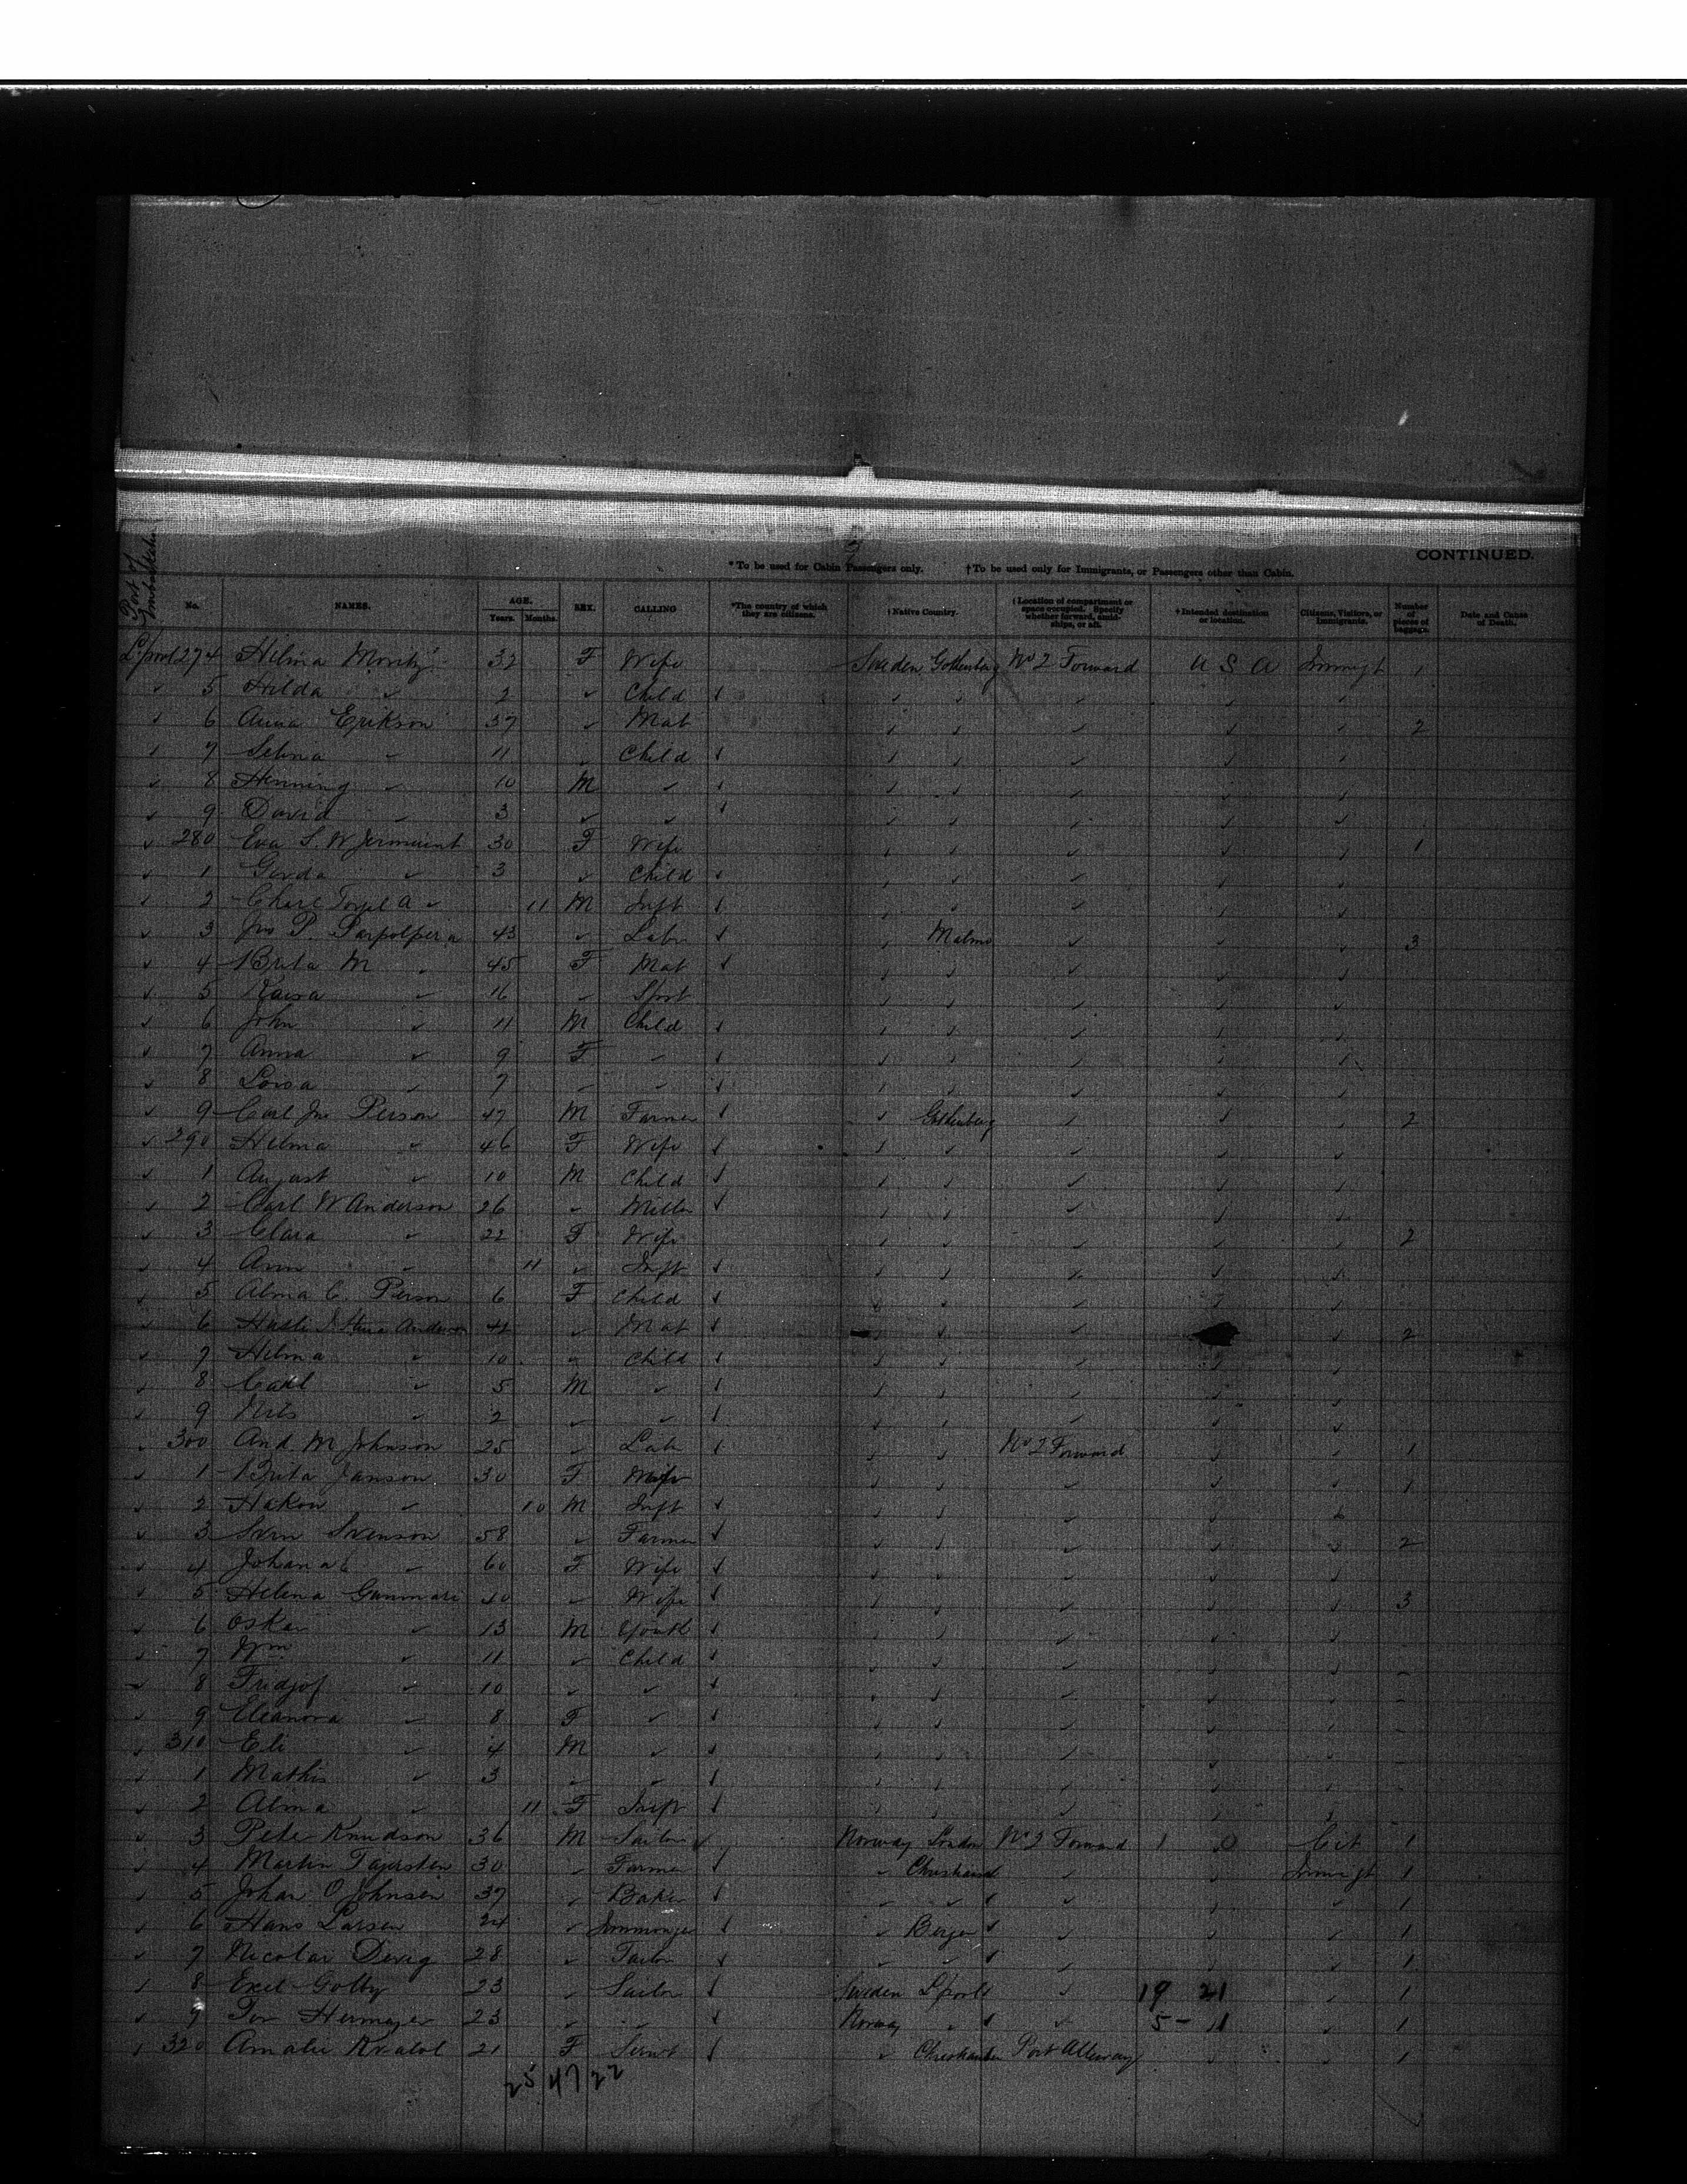 Port of Embarkation
CONTINUED.
*To be used for Cabin Passengers only. †To be used only for Immigrants, or Passengers other than Cabin.
No. NAMES. AGE. Years. Months. SEX. CALLING *The country of which they are citizens. †Native Country. †Location of compartment or space occupied. Specify whether forward, amidships, or aft. †Intended destination or location. Citizens, Visitors, or Immigrants. Number of pieces of baggage. Date and Cause of Death.
L'pool 274 Hilma 32 F Wife Sweden Gothenberg No 2 Forward U S A Immigt 1
✓ 5 Hilda ✓ 2 ✓ Child ✓ ✓ ✓ ✓ ✓
✓ 6 Anna Erikson 37 ✓ Mat ✓ ✓ ✓ ✓ ✓ 2
✓ 7 Selma ✓ 11 ✓ Child ✓ ✓ ✓ ✓ ✓ ✓
✓ 8 Henning ✓ 10 M ✓ ✓ ✓ ✓ ✓ ✓ ✓
✓ 9 David ✓ 3 ✓ ✓ ✓ ✓ ✓ ✓ ✓ ✓
✓ 280 Eva S. W 30 F Wife ✓ ✓ ✓ ✓ ✓ 1
✓ 1 Gerda ✓ 3 ✓ Child ✓ ✓ ✓ ✓ ✓ ✓
✓ 2 A ✓ 11 M Inft ✓ ✓ ✓ ✓ ✓ ✓
✓ 3 Jno P. 43 ✓ Labr ✓ ✓ Malmo ✓ ✓ ✓ 3
✓ 4 Brita M ✓ 45 F Mat ✓ ✓ ✓ ✓ ✓ ✓
✓ 5 Kaisa ✓ 16 ✓ Spst ✓ ✓ ✓ ✓ ✓
✓ 6 John ✓ 11 M Child ✓ ✓ ✓ ✓ ✓ ✓
✓ 7 Anna ✓ 9 F ✓ ✓ ✓ ✓ ✓ ✓ ✓
✓ 8 Lovisa ✓ 7 ✓ ✓ ✓ ✓ ✓ ✓ ✓ ✓
✓ 9 Carl Jno Person 47 M Farmer ✓ ✓ Gothenberg ✓ ✓ ✓ 2
✓ 290 Hilma ✓ 46 F Wife ✓ ✓ ✓ ✓ ✓ ✓
✓ 1 August ✓ 10 M Child ✓ ✓ ✓ ✓ ✓ ✓
✓ 2 Carl W Anderson 26 ✓ Miller ✓ ✓ ✓ ✓ ✓ ✓
✓ 3 Clara ✓ 22 F Wife ✓ ✓ ✓ ✓ ✓ 2
✓ 4 Ann ✓ 11 ✓ Inft ✓ ✓ ✓ ✓ ✓ ✓
✓ 5 Alma C. Person 6 F Child ✓ ✓ ✓ ✓ ✓ ✓
✓ 6 Anderson ✓ Mat ✓ ✓ ✓ ✓ 2
✓ 7 Hilma ✓ 10 ✓ Child ✓ ✓ ✓ ✓ ✓ ✓
✓ 8 Carl ✓ 5 M ✓ ✓ ✓ ✓ ✓ ✓ ✓
✓ 9 Nils ✓ 2 ✓ ✓ ✓ ✓ ✓ ✓ ✓ ✓
✓ 300 And. M Johnson 25 ✓ Labr ✓ ✓ ✓ No 2 Forward ✓ ✓ 1
✓ 1 Brita Janson 30 F Wife ✓ ✓ ✓ ✓ ✓ 1
✓ 2 Hakon ✓ 10 M Inft ✓ ✓ ✓ ✓ ✓ ✓
✓ 3 Sven Svenson 58 ✓ Farmer ✓ ✓ ✓ ✓ ✓ ✓ 2
✓ 4 Johana C ✓ 60 F Wife ✓ ✓ ✓ ✓ ✓ ✓
✓ 5 Helena 40 ✓ Wife ✓ ✓ ✓ ✓ ✓ ✓ 3
✓ 6 Oskar ✓ 13 M Youth ✓ ✓ ✓ ✓ ✓ ✓
✓ 7 Wm ✓ 11 ✓ Child ✓ ✓ ✓ ✓ ✓ ✓ -
✓ 8 Fridjof ✓ 10 ✓ ✓ ✓ ✓ ✓ ✓ ✓ ✓ -
✓ 9 Eleanora ✓ 8 F ✓ ✓ ✓ ✓ ✓ ✓ ✓ -
✓ 310 Eli ✓ 4 M ✓ ✓ ✓ ✓ ✓ ✓ ✓ -
✓ 1 Mathis ✓ 3 ✓ ✓ ✓ ✓ ✓ ✓ ✓ ✓ -
✓ 2 Alma ✓ 11 F Inft ✓ ✓ ✓ ✓ ✓ ✓
✓ 3 Peter Knudson 36 M Sailor ✓ Norway London No 2 Forward Cit 1
✓ 4 Martin 30 ✓ Farmer ✓ ✓ ✓ ✓ Immigt 1
✓ 5 Johan O Johnsen 37 ✓ Baker ✓ ✓ ✓ ✓ ✓ ✓ 1
✓ 6 Hans Larsen 24 ✓ Ironmonger ✓ ✓ Bergen ✓ ✓ ✓ 1
✓ 7 Nicolai 28 ✓ ✓ ✓ ✓ ✓ ✓ 1
✓ 8 23 ✓ Sailor ✓ Sweden L'pool ✓ 19 21 ✓ 1
✓ 9 23 ✓ ✓ ✓ Norway ✓ ✓ 5 - 11 ✓ 1
✓ 320 Amalie 21 F Servt ✓ ✓ Port Alleway ✓ ✓ 1
25 47 22